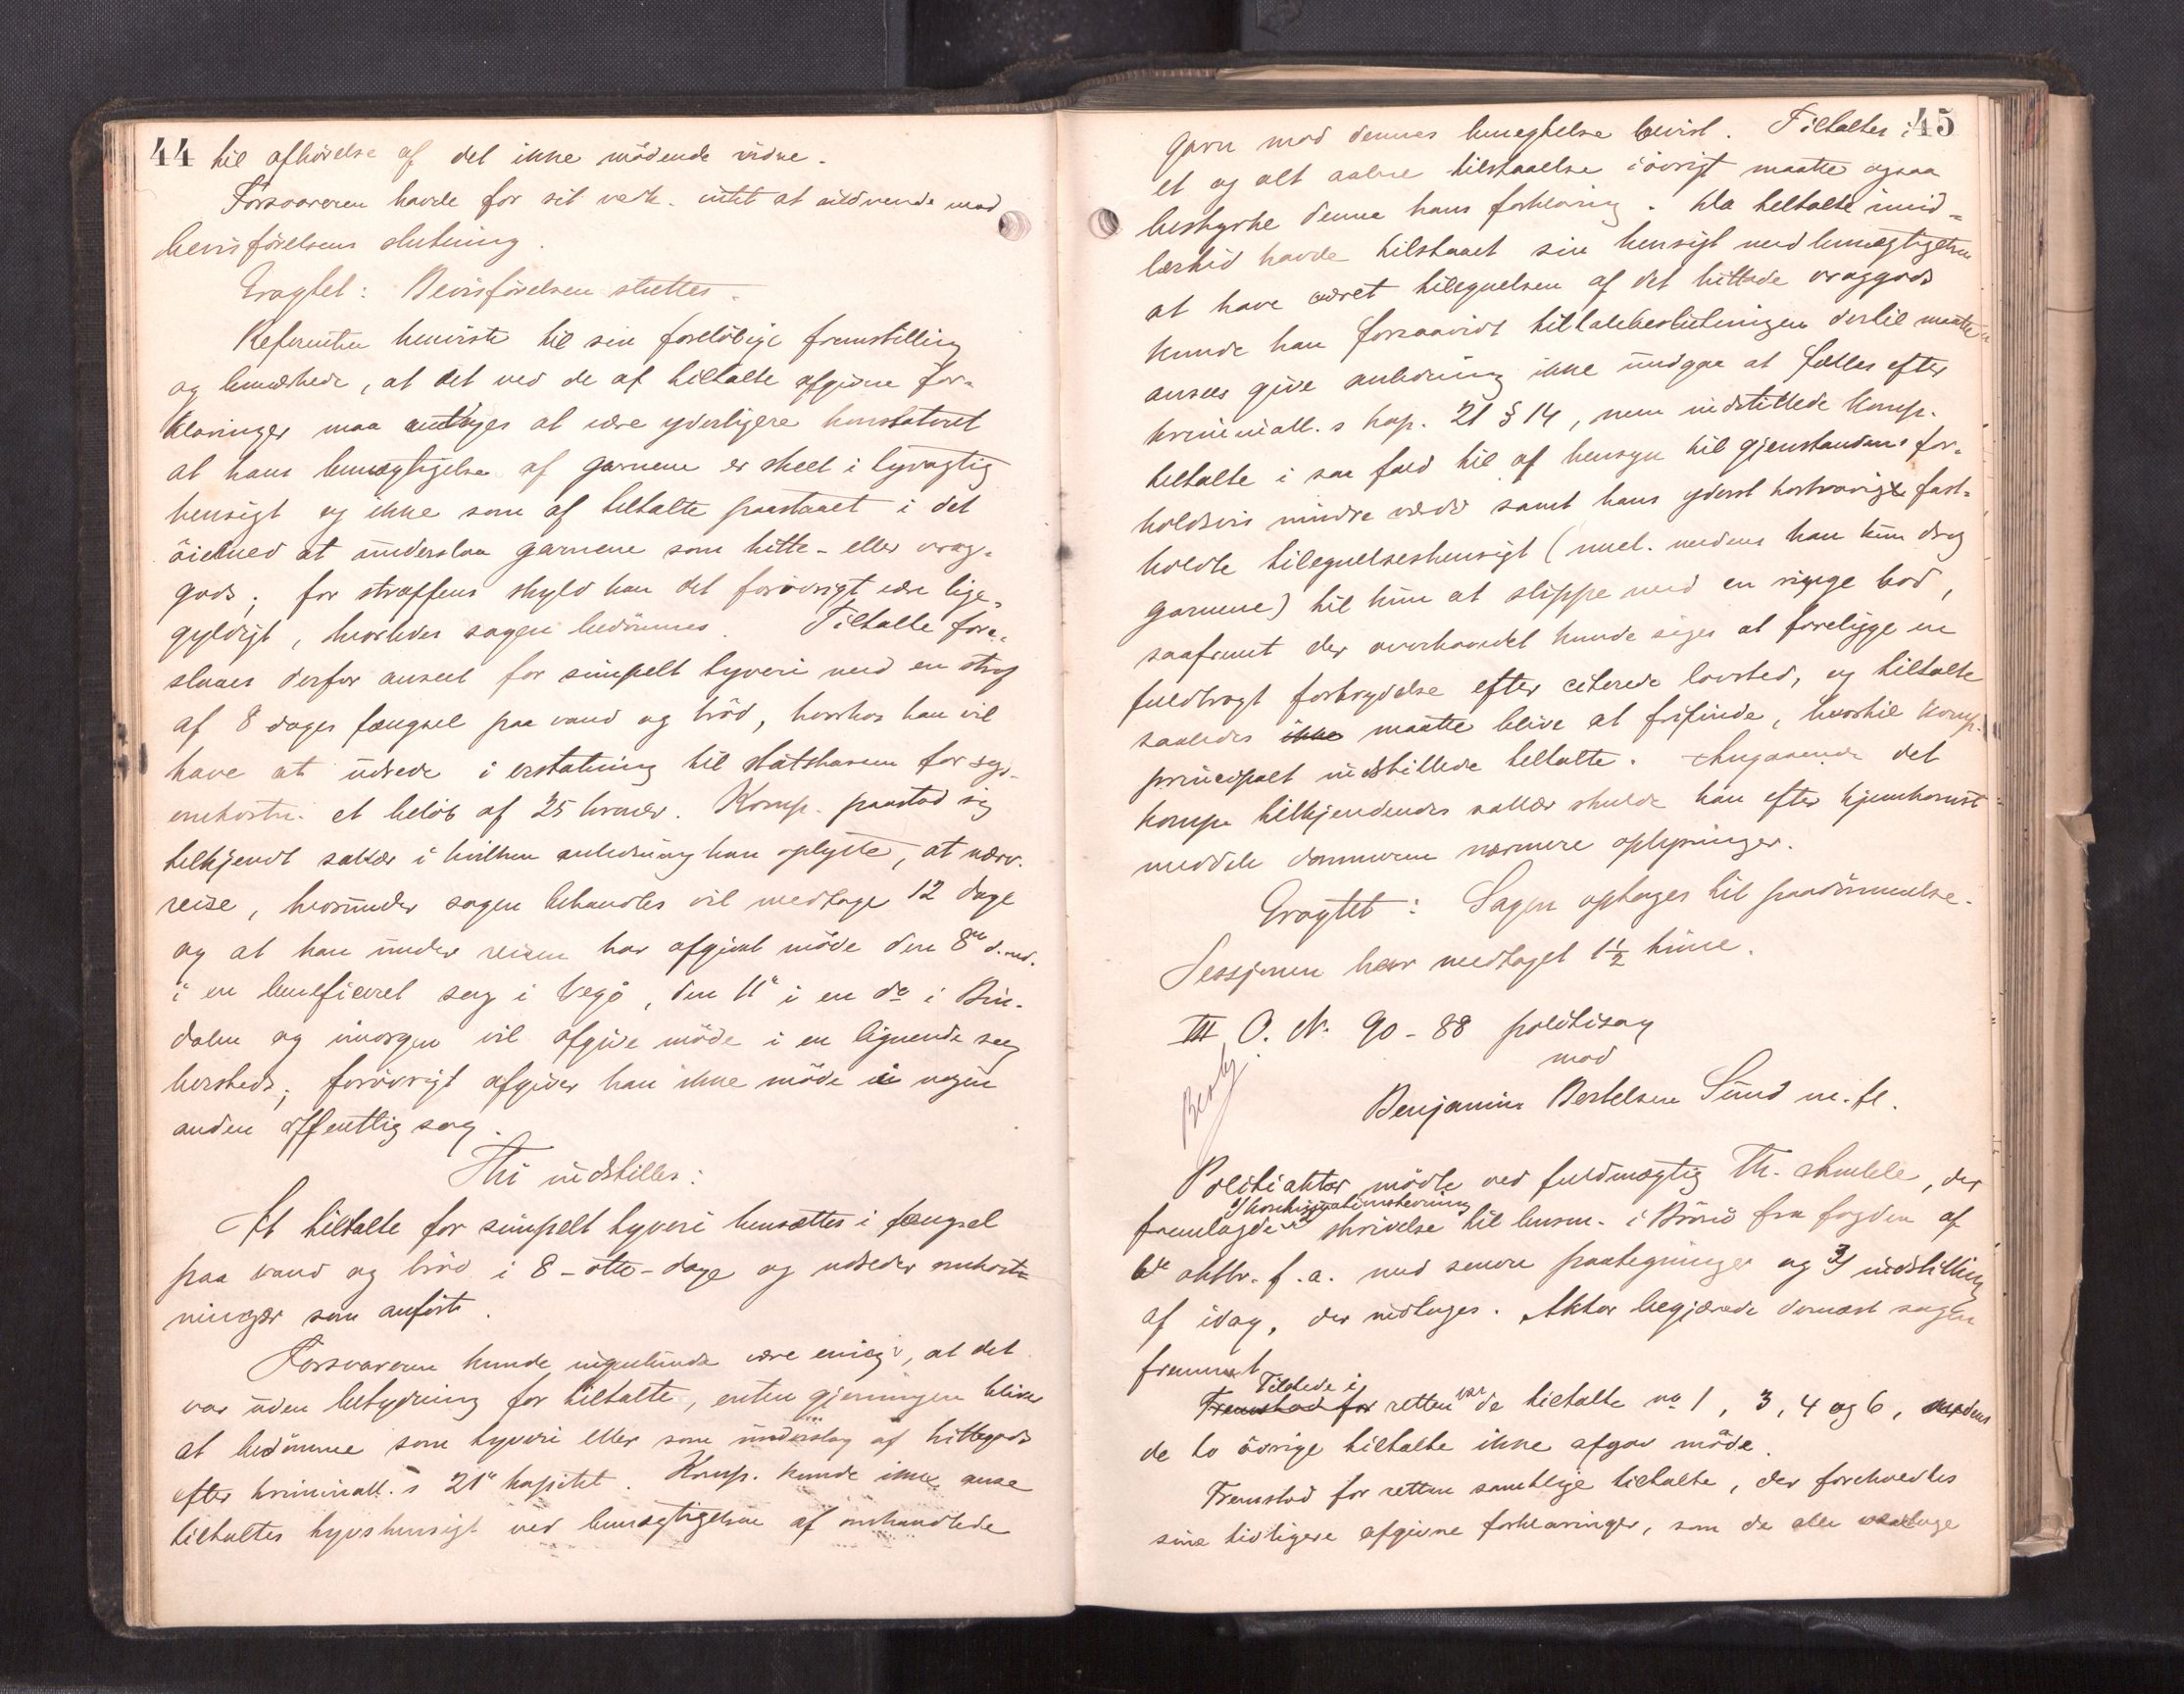 44 til afhörelse af det ikke mödende vidne.
Forsvareren havde for sit vedk. intet at indvende mod
bevisförelsens slutning.
Eragtet: Bevisförelsen sluttes.
Referenten henviste til sin foreløbige fremstilling
og bemærkede, at det ved de af tiltalte afgivne for-
klaringer maa antages at være yderligere konstateret
at hans bemægtigelse af garnene er skeet i tyvagtig
hensigt og ikke som af tiltalte paastaaet i det
öiemed at underslaa garnene som hitte- eller vrag-
gods; for straffens skyld kan det forövrigt være lige-
gyldigt, hvorledes sagen bedömmes. Tiltalte fore-
slaaes derfor anseet for simpelt tyveri med en straf
af 8 dages fængsel paa vand og bröd, hvorhos han vil
have at udrede i erstatning til statskassen for sags-
omkostn. et belöb af 25 kroner. Komp. paastod sig
tilkjendt salær i hvilken anledning han oplyste, at nærv.
reise, hvorunder sagen behandles vil medtage 12 dage
og at han under reisen har afgivet möde den 8de d. md.
i en beneficeret sag i Vegö, den 11te i en do i Bin-
dalen og imorgen vil afgive möde i en lignende sag
hersteds; forövrigt afgiver han ikke möde i nogen
anden offentlig sag.
Thi indstilles:
At tiltalte for simpelt tyveri hensættes i fængsel
paa vand og bröd i 8 - otte - dage og udreder omkost-
ninger som anfört.
Forsvareren kunde ingenlunde være enig i, at det
var uden betydning for tiltalte, enten gjerningen bliver
at bedömme som tyveri eller som underslag af hittegods
efter kriminall.s 21de kapitel. Komp. kunde ikke anse
tiltaltes tyvshensigt ved bemægtigelsen af omhandlede
45
garn mod dennes benegtelse bevist. Tiltaltes i
et og alt aabne tilstaaelse iövrigt maatte ogsaa
bestyrke denne hans forklaring. Da tiltalte imid-
lertid havde tilstaaet sin hensigt med bemægtigelsen
at have været tilegnelsen af det hittede vraggods
kunde han forsaavidt tiltalebeslutningen dertil maatte
ansees give anledning ikke undgaa at fælles efter
kriminall.s kap. 21 § 14, men indstillede komp.
tiltalte i saa fald til af hensyn til gjenstandens for-
holdsvis mindre værdi samt hans yderst kortvarige fast-
holdte tilegnelseshensigt (nml. medens han kun drog
garnene) til kun at slippe med en ringe bod,
saafremt der overhovedet kunde siges at foreligge en
fuldbragt forbrydelse efter citerede lovsted, og tiltalte
saaledes ikke maatte blive at frifinde, hvortil komp.
principalt indstillede tiltalte. Angaaende det
komp. tilkjendendes salær skulde han efter hjemkomst
meddele dommeren nærmere oplysninger.
Eragtet: Sagen optages til paadömmelse.
Sessjonen har medtaget 1½ time.
III O. N. 90 - 88 politisag
mod
Benjamin Bertelsen Sund m. fl.
Politiaktor mödte ved fuldmægtig Th. , der
fremlagde skrivelse til lensm. i Brönö fra fogden af
6te oktbr. f. a. med senere paategninger og 3/ indstilling
af idag, der indtages. Aktor begjærede dernæst sagen
fremmet.
Tilstede i
Fremstod for retten var de tiltalte no 1, 3, 4 og 6, medens
de to övrige tiltalte ikke afgav möde.
Fremstod for retten samtlige tiltalte, der foreholdtes
sine tidligere afgivne forklaringer, som de alle vedtage